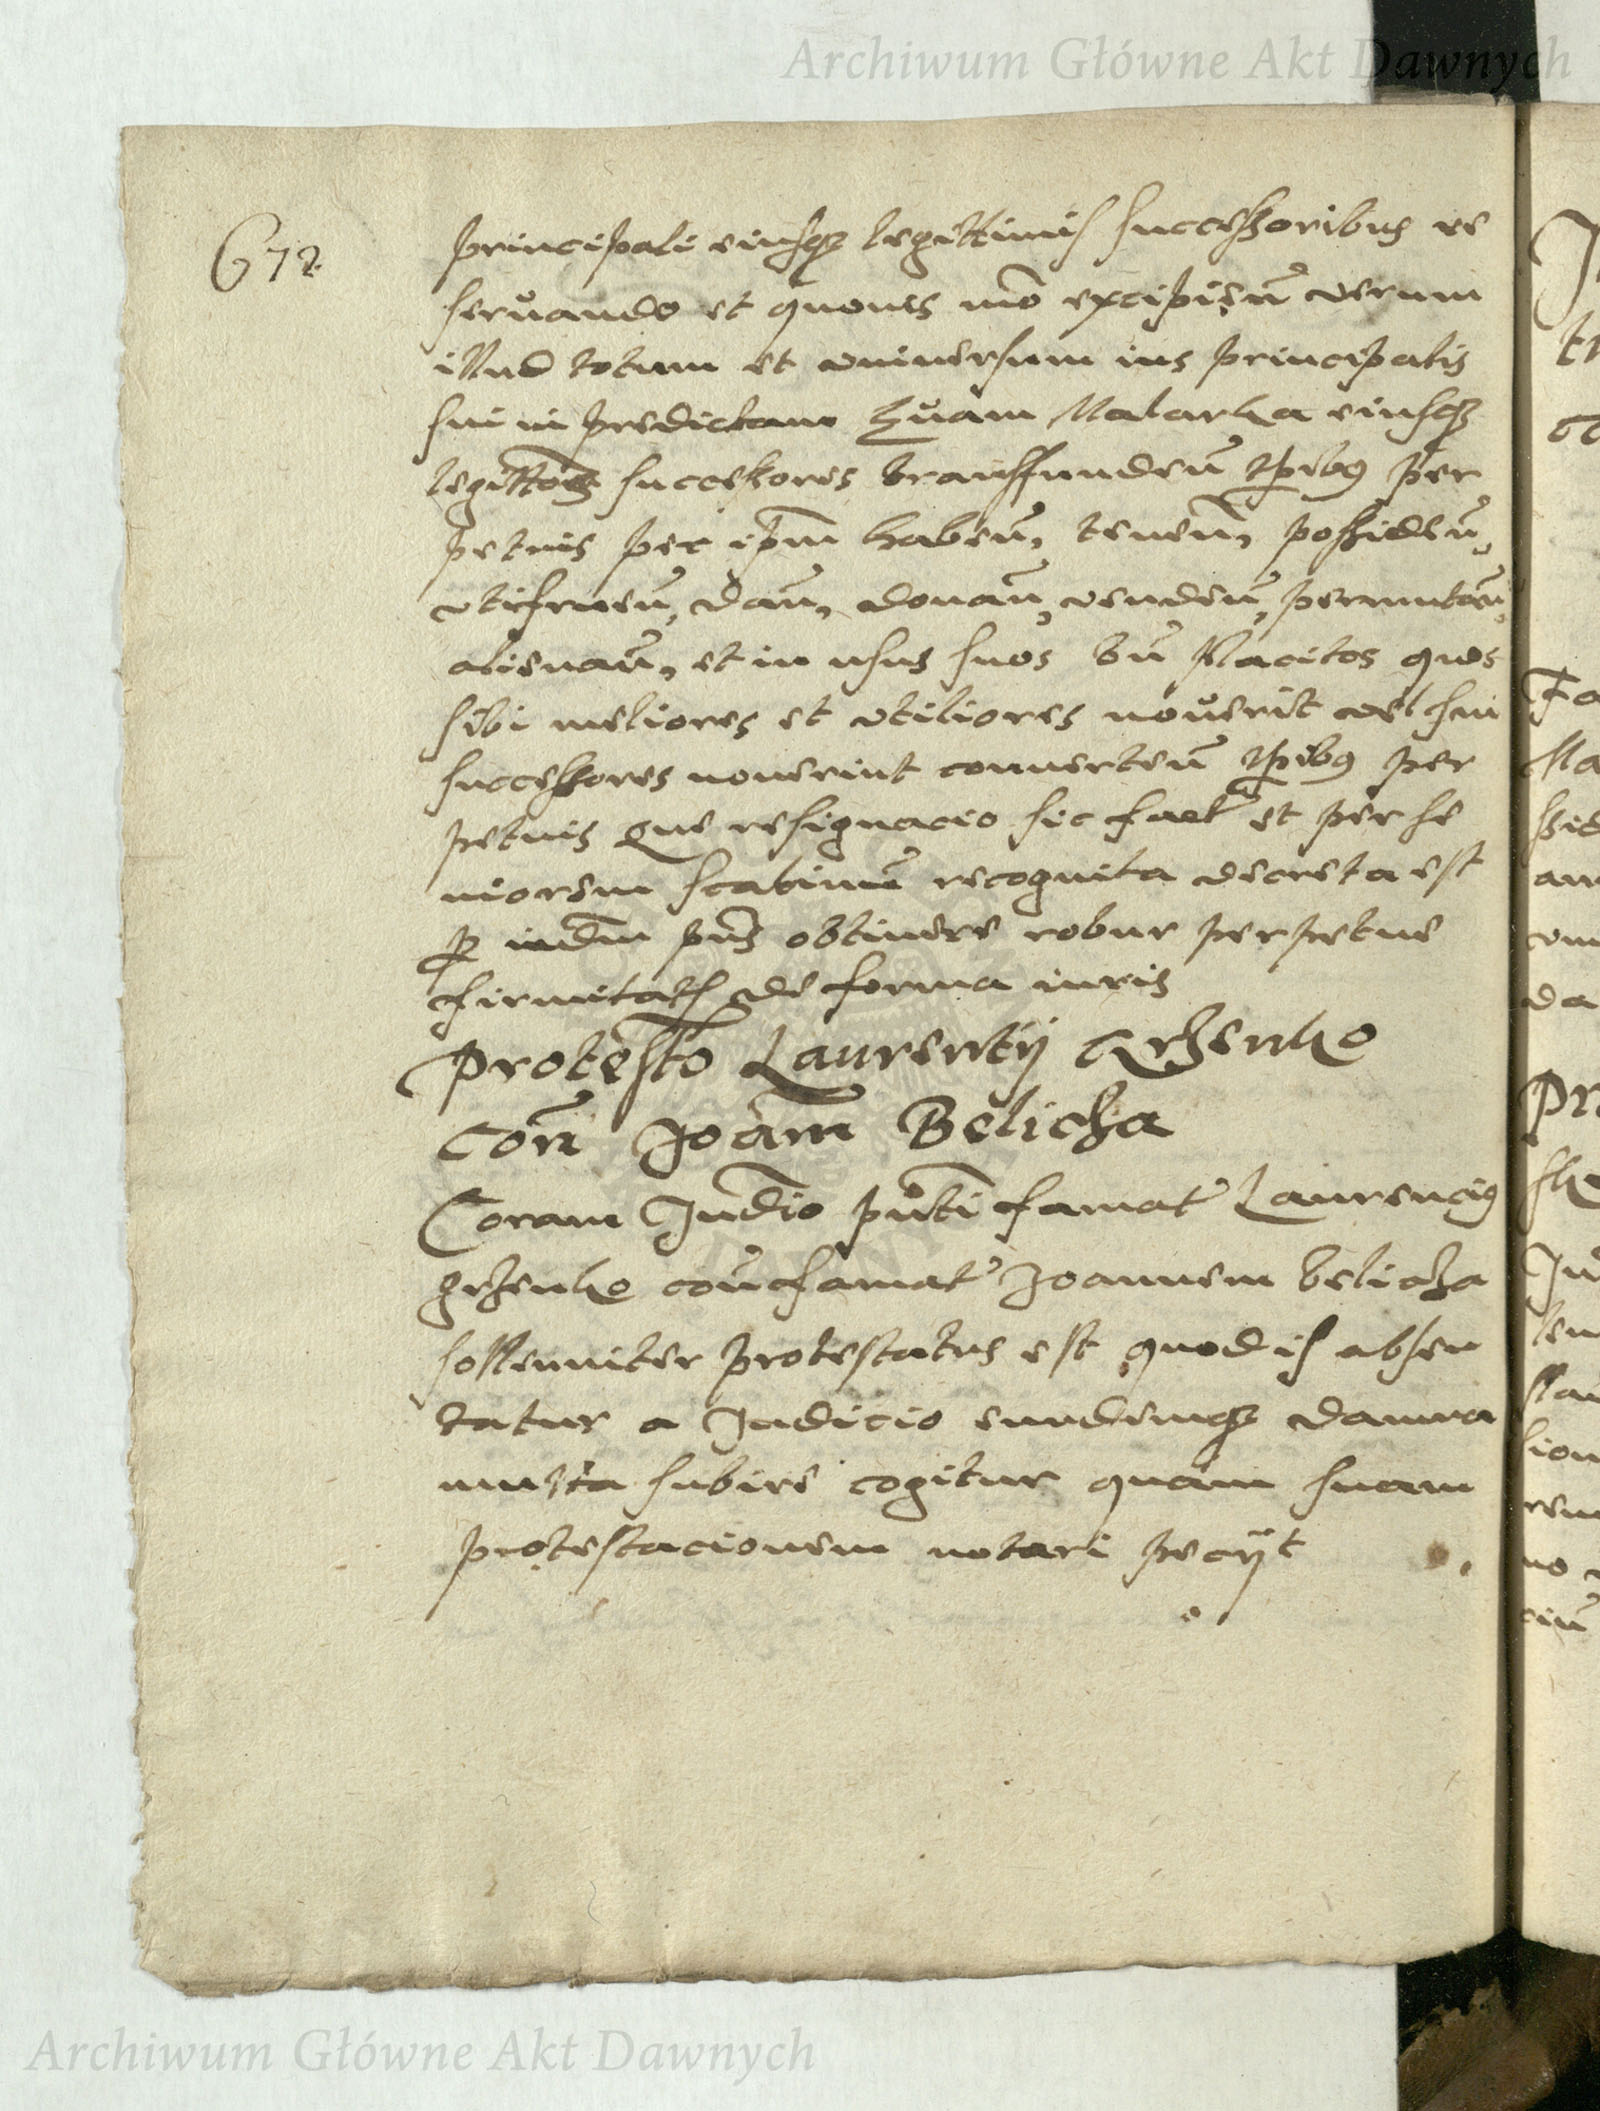 Archiwum Główne Akt Dawnych
672.
principali eiusq3 legittimis successoribus re
seruando et quouis mo excipien verum
illud totum et vniuersum ius principalis
sui in predictam Malarka eiusq3
legittos successores transfunden tpibus per
petuis per ipm haben, tenen, possiden,
vtifruen, dan, donan, venden, permutan,
alienan, et in usus suos bn placitos quos
sibi meliores et vtiliores nouerit vel sui
successores nouerint conuerten tpibus per
petuis que resignacio sic fact et per se
niorem scabinu recognita decreta est
p iudm pns obtinere robur perpetue
firmitatis de forma iuris
Protesto Laurentij Grzenko
Con Joam Belicza
Coram Judio pnti famat Laurencius
grzenko con famat Joannem belicza
sollenniter protestatus est quod is absen
tatur a Judicio eundemq3 damna
multa subire cogitur quam suam
protestacionem notari peciit
Archiwum Główne Akt Dawnych